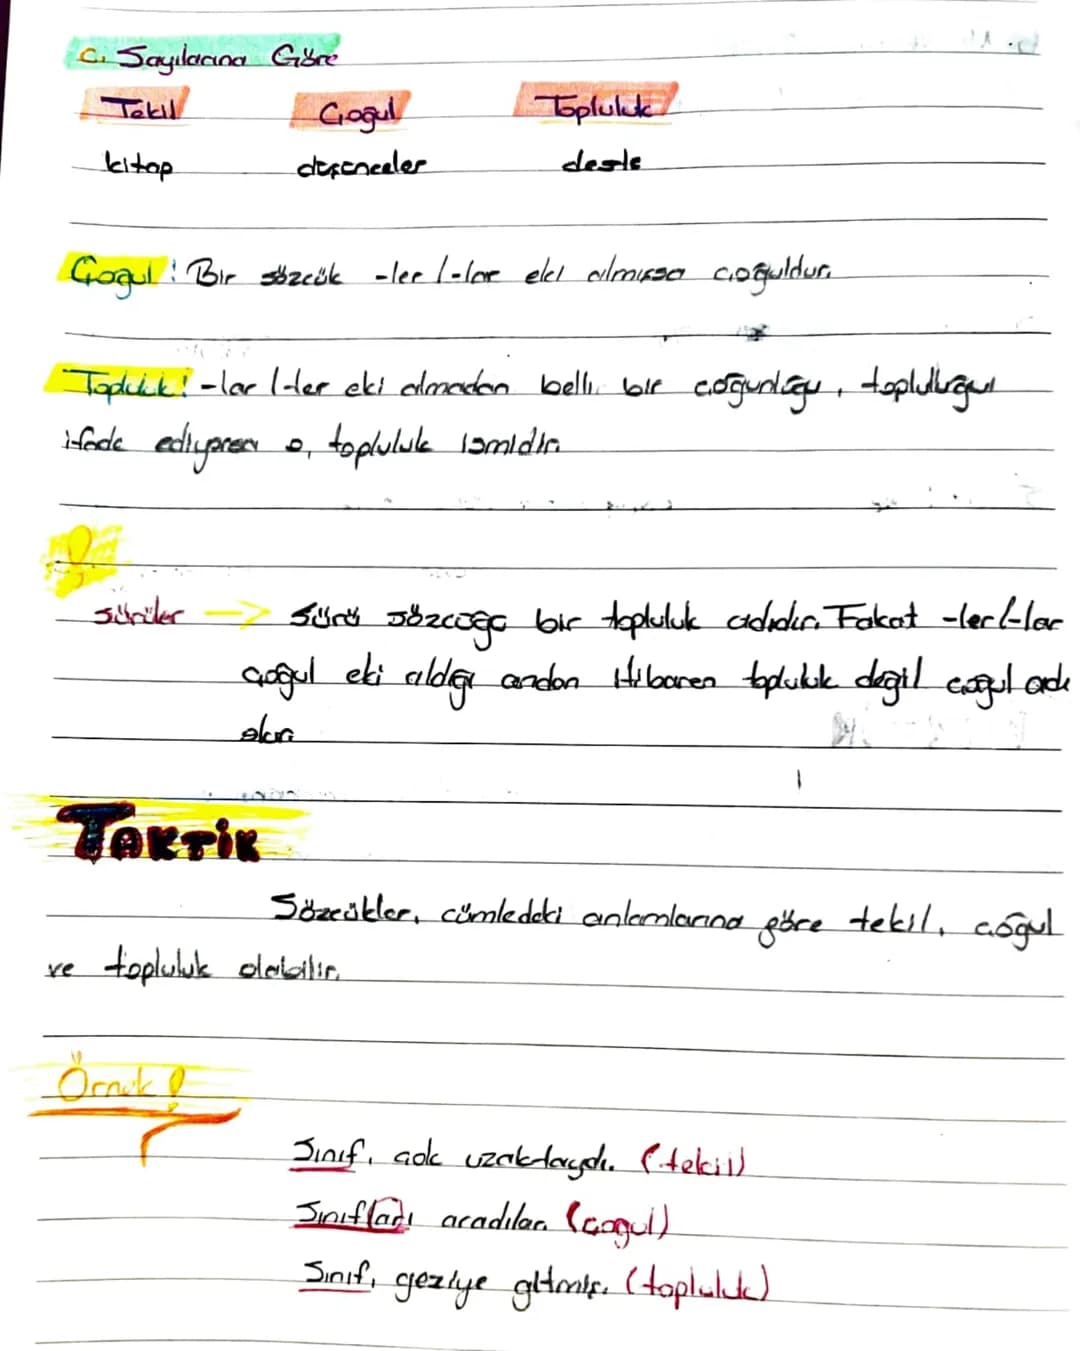 C. Sayılarına Göre
Tekil Çoğul Topluluk
kitap düşünceler deste
Çoğul: Bir sözcük -ler/-lar eki almışsa çoğuldur.
Topluluk: -lar/-ler eki almadan belli bir çoğunluğu, topluluğu
ifade ediyorsa o, topluluk ismidir.
Sürüler → Sürü sözcüğü bir topluluk adıdır. Fakat -ler/-lar
çoğul eki aldığı andan itibaren topluluk değil çoğul ada
olur
TAKTİK
Sözcükler, cümledeki anlamlarına göre tekil, çoğul
ve topluluk olabilir.
Örnek!
Sınıf, çok uzaktaydı. (tekil)
Sınıfları aradılar. (çoğul)
Sınıf, geziye gitmiş. (topluluk)